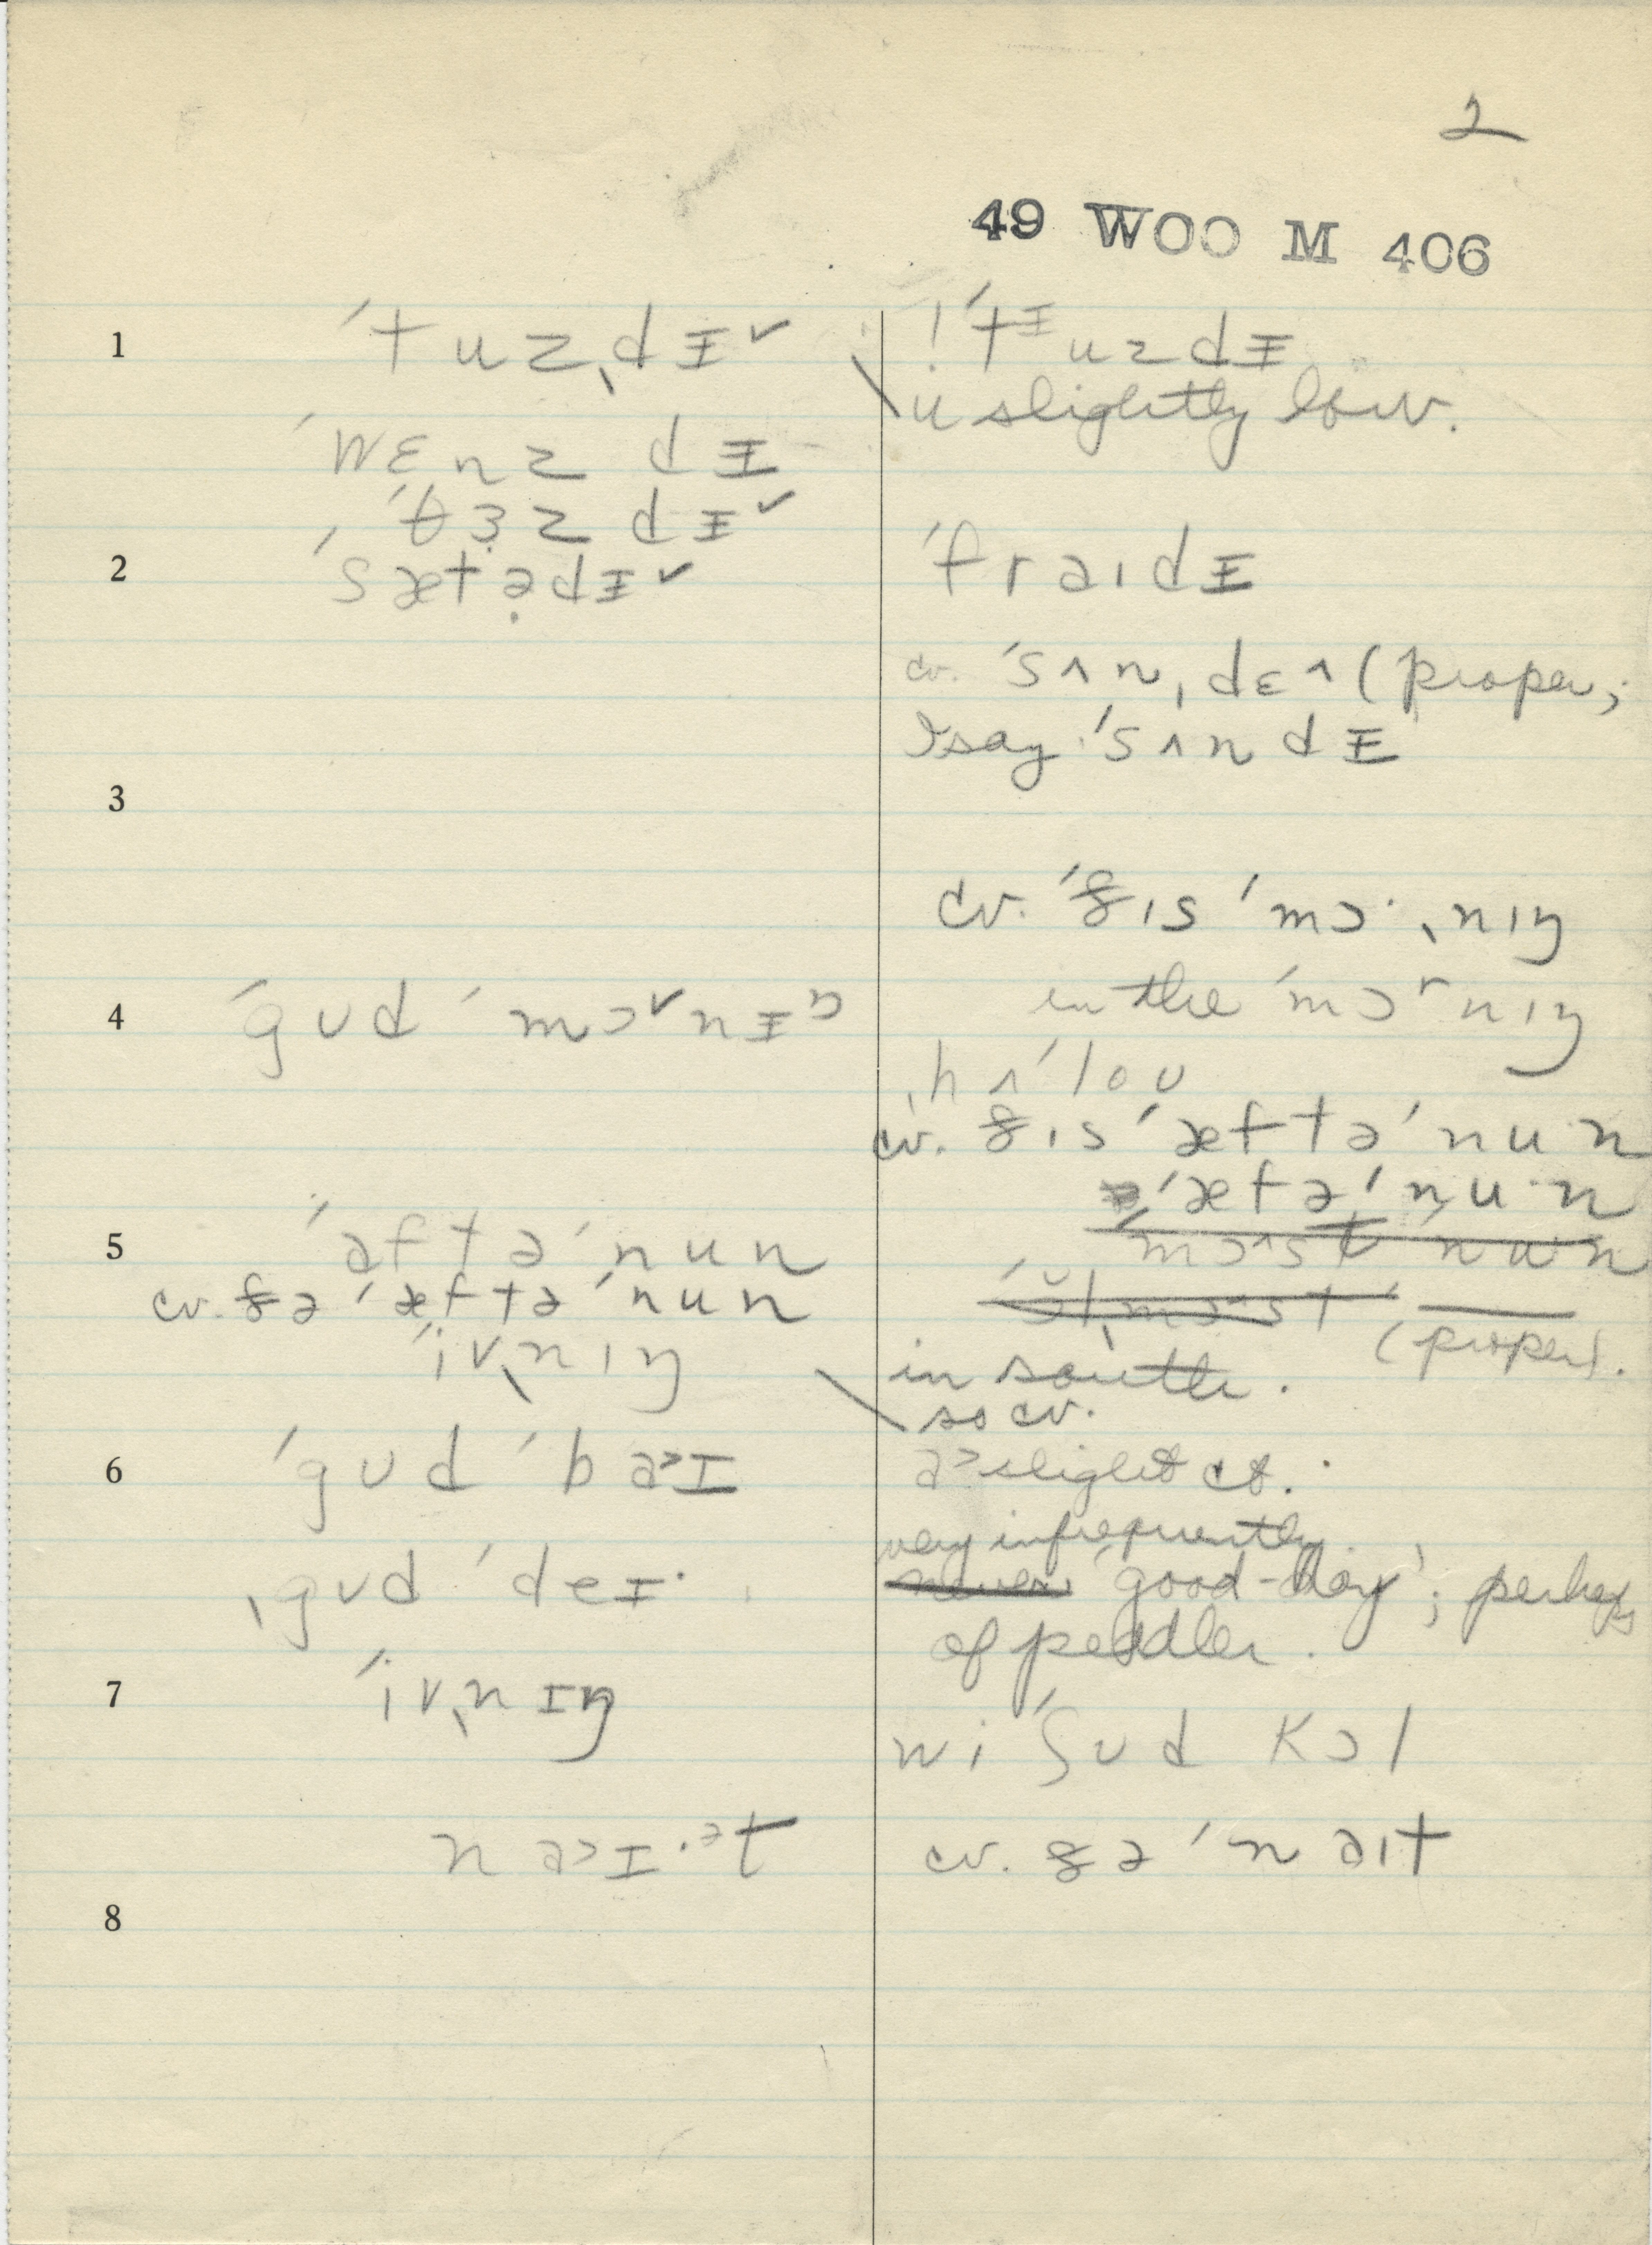 2
49 WOO M 406
1 ˈtuzˌdɪ˅ ! ˈtᶦuzdɪ
u slightly low.
ˈwɛnz dɪ
ˈθɜz dɪ˅
2 ˈsætədɪ˅ ˈfraɪdɪ
cv. ˈsʌnˌdɛ^ (proper;
I say ˈsʌndɪ
3
cv. ˈðɪs ˈmɔ·ˌnɪŋ
in the ˈmɔʳnɪŋ
4 ˈgʊd ˈmɔ˅nɪⁿ
ˌhʌˈloʊ
cv. ðɪs ˈæftəˈnun
ˈæftəˈnu·n
5 ˈaftəˈnun
cv. ðə ˈæftəˈnun
ˈivˌnɪŋ (proper).
in south.
so cv.
6 ˈgʊd ˈba>ɪ a> slight ct.
very infrequently
ˌgʊd ˈdeɪ· never 'good-day'; perhaps
of peddler.
7 ˈivˌnɪŋ
wi ˈʃʊd kɔl
na>ɪ·ᵊt cv. ðə ˈnaɪt
8